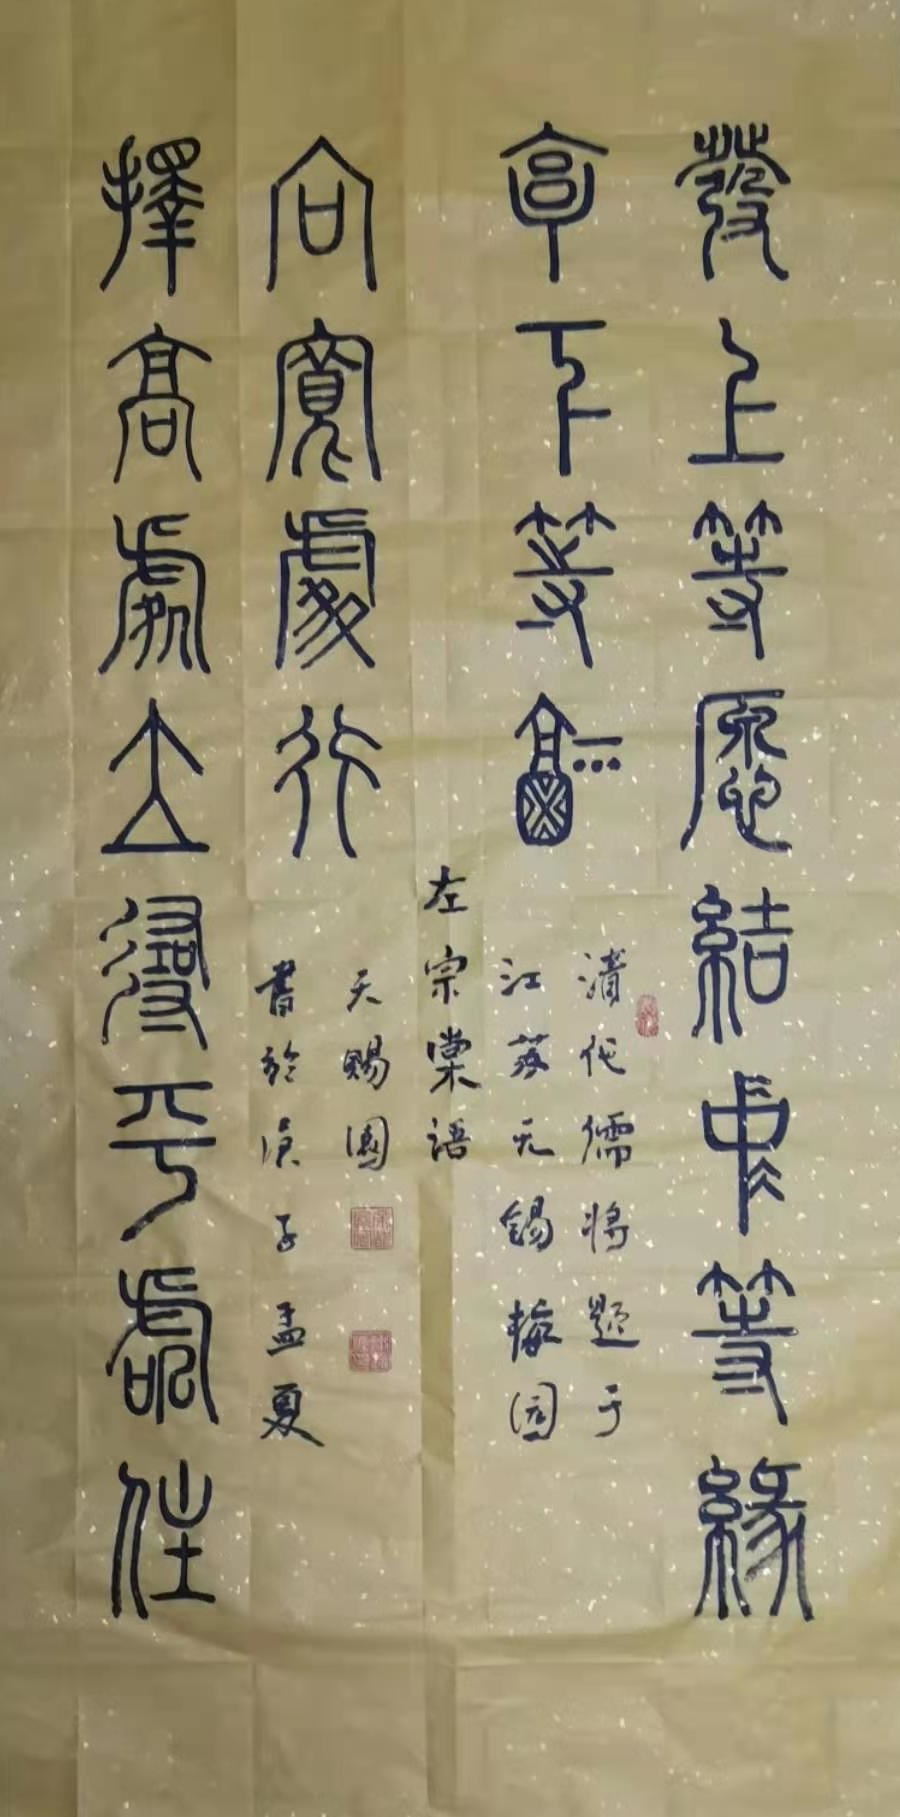 發上等愿結中等緣
享下等福
擇高處立尋平處住
向寬處行
清代儒將題于
江蘇无錫梅园
左宗棠語
天賜園
書於庚子孟夏